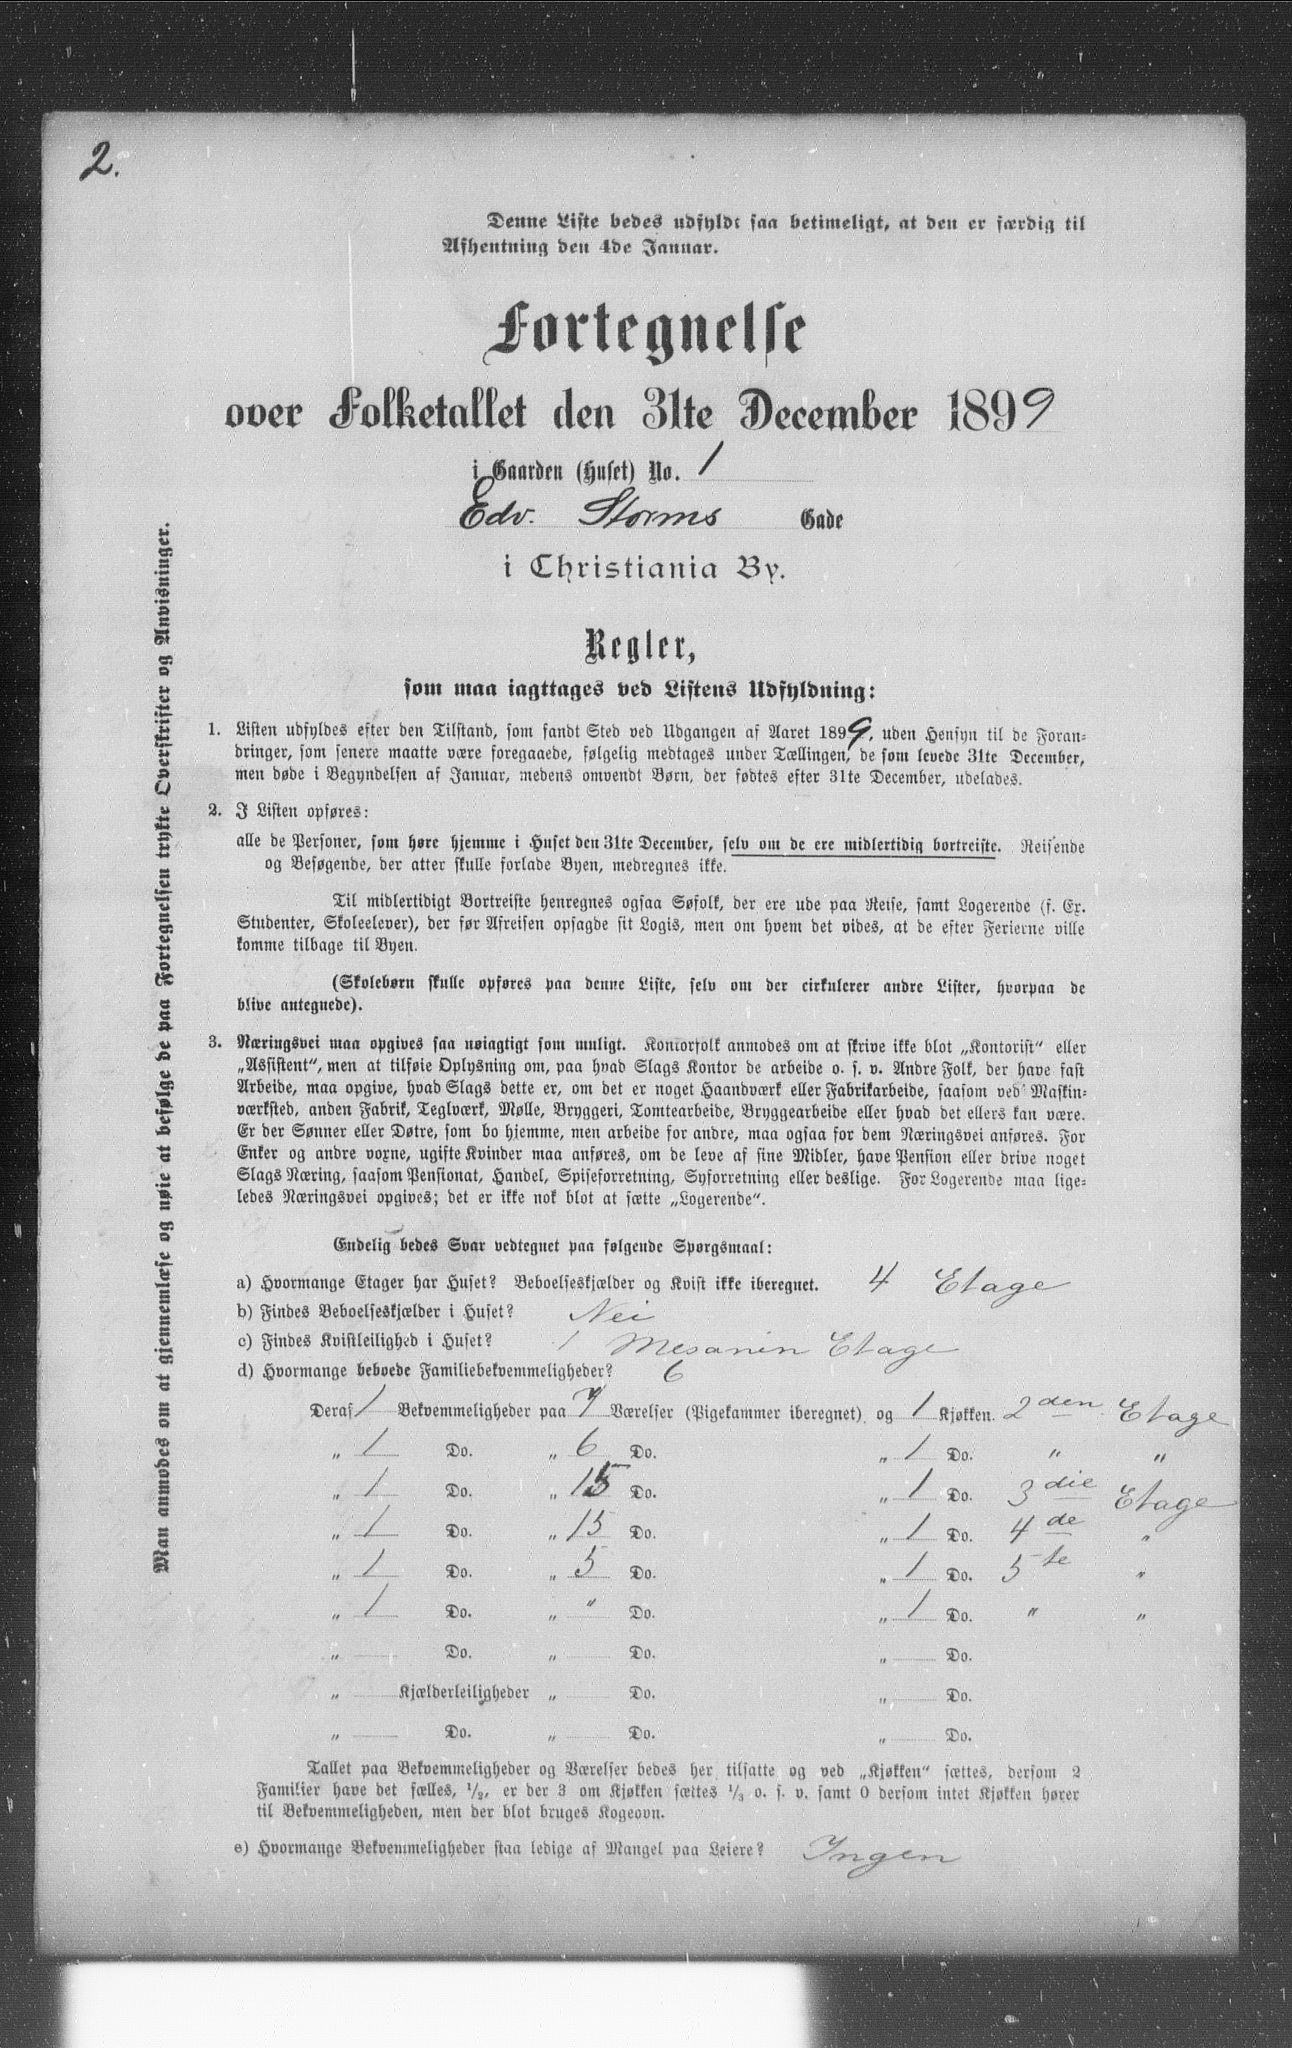 2.
Denne Liste bedes udfyldt saa betimeligt, at den er færdig til
Afhentning den 4de Januar.
Fortegnelse
over Folketallet den 31te December 1899
i Gaarden (Huset) No. 1
Edv. Storms Gade
i Christiania By.
Regler,
som maa iagttages ved Listens Udfyldning:
1. Listen udfyldes efter den Tilstand, som fandt Sted ved Udgangen af Aaret 1899, uden Hensyn til de Foran-
dringer, som senere maatte være foregaaede, følgelig medtages under Tællingen, de som levede 31te December,
men døde i Begyndelsen af Januar, medens omvendt Børn, der fødtes efter 31te December, udelades.
2. I Listen opføres:
alle de Personer, som høre hjemme i Huset den 31te December, selv om de ere midlertidig bortreiste. Reisende
og Besøgende, der atter skulle forlade Byen, medregnes ikke.
Til midlertidigt Bortreiste henregnes ogsaa Søfolk, der ere ude paa Reise, samt Logerende (f. Ex.
Studenter, Skoleelever), der før Afreisen opsagde sit Logis, men om hvem det vides, at de efter Ferierne ville
komme tilbage til Byen.
(Skolebørn skulle opføres paa denne Liste, selv om der cirkulerer andre Lister, hvorpaa de
blive antegnede).
3. Næringsvei maa opgives saa nøiagtigt som muligt. Kontorfolk anmodes om at skrive ikke blot „Kontorist“ eller
„Assistent“, men at tilføie Oplysning om, paa hvad Slags Kontor de arbeide o. s. v. Andre Folk, der have fast
Arbeide, maa opgive, hvad Slags dette er, om det er noget Haandværk eller Fabrikarbeide, saasom ved Maskin-
værksted, anden Fabrik, Teglværk, Mølle, Bryggeri, Tomtearbeide, Bryggearbeide eller hvad det ellers kan være.
Er der Sønner eller Døtre, som bo hjemme, men arbeide for andre, maa ogsaa for dem Næringsvei anføres. For
Enker og andre voxne, ugifte Kvinder maa anføres, om de leve af sine Midler, have Pension eller drive noget
Slags Næring, saasom Pensionat, Handel, Spiseforretning, Syforretning eller deslige. For Logerende maa lige-
ledes Næringsvei opgives; det er ikke nok blot at sætte „Logerende“.
Endelig bedes Svar vedtegnet paa følgende Spørgsmaal:
a) Hvormange Etager har Huset? Beboelseskjælder og Kvist ikke iberegnet. 4 Etage
b) Findes Beboelseskjælder i Huset? Nei
c) Findes Kvistleilighed i Huset? 1 Mesanin Etage
d) Hvormange beboede Familiebekvemmeligheder? 6
Deraf 1 Bekvemmeligheder paa 7 Værelser (Pigekammer iberegnet) og 1 Kjøkken. 2den Etage
„ 1 Do. „ 6 Do. „ 1 Do. „ „
„ 1 Do. „ 15 Do. „ 1 Do. 3die Etage
„ 1 Do. „ 15 Do. „ 1 Do. 4de „
„ 1 Do. „ 5 Do. „ 1 Do. 5te „
„ 1 Do. „ " Do. „ 1 Do. " „
„ Do. „ Do. „ Do.
„ Kjælderleiligheder „ Do. „ Do.
„ Do. „ Do. „ Do.
Tallet paa Bekvemmeligheder og Værelser bedes her tilsatte og ved „Kjøkken“ sættes, dersom 2
Familier have det fælles, 1/2, er der 3 om Kjøkken sættes 1/3 o. s. v. samt 0 dersom intet Kjøkken hører
til Bekvemmeligheden, men der blot bruges Kogeovn.
e) Hvormange Bekvemmeligheder staa ledige af Mangel paa Leiere? Ingen
Man anmodes om at gjennemlæse og nøie at befølge de paa Fortegnelsen trykte Overskrifter og Anvisninger.